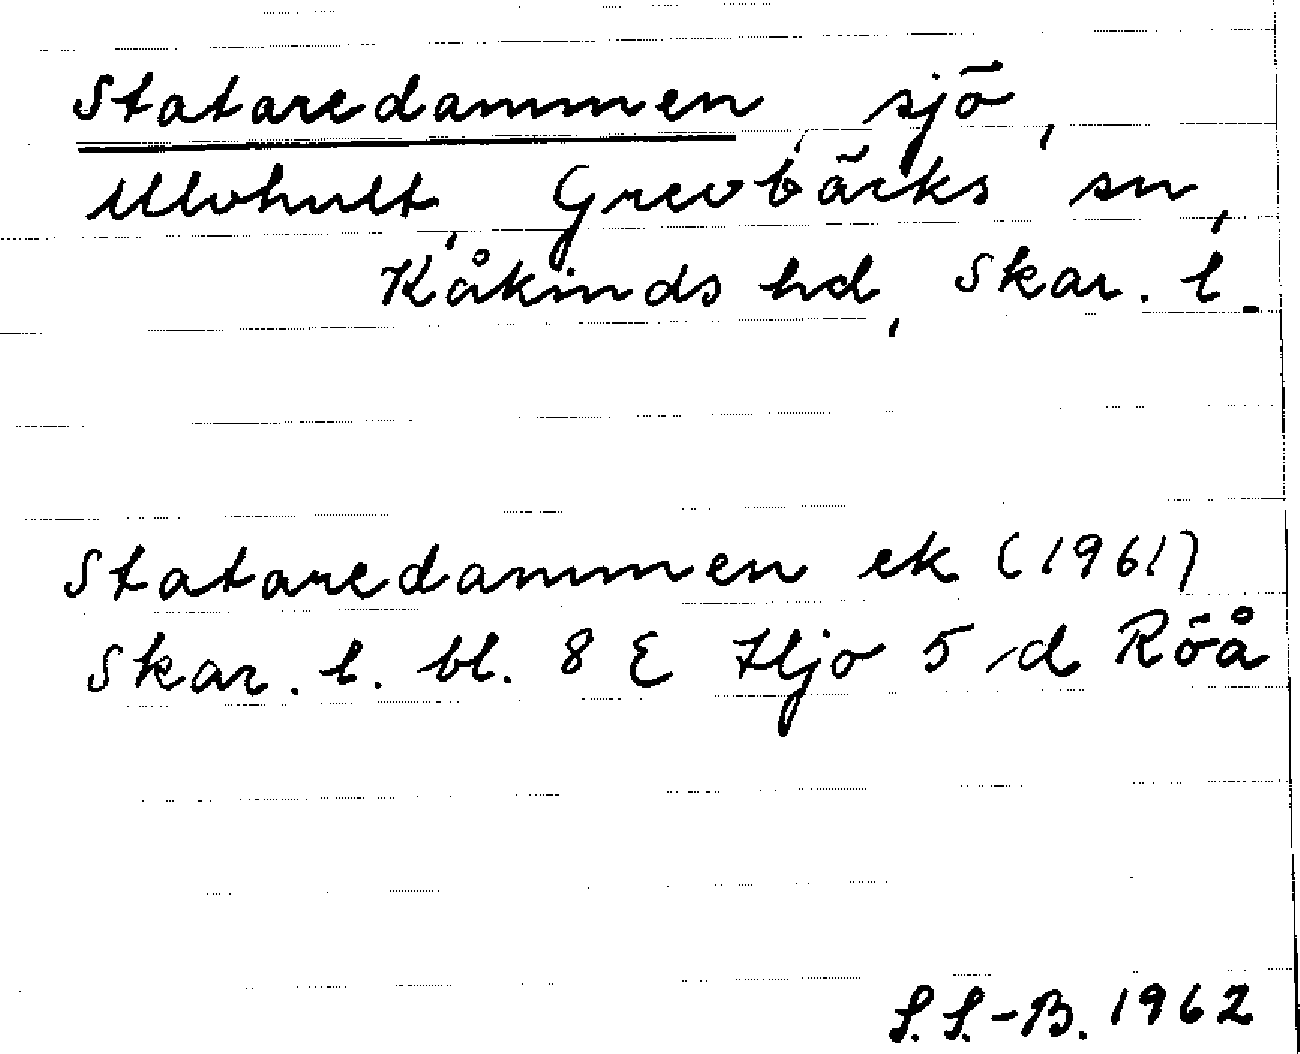 Stataredammen sjö,
Ulvhult, Grevbäcks sn,
Kåkinds hd, Skar. l.
Stataredammen ek (1961)
Skar. l. bl. 8 E Hjo 5 d Röå
S.S.-B. 1962